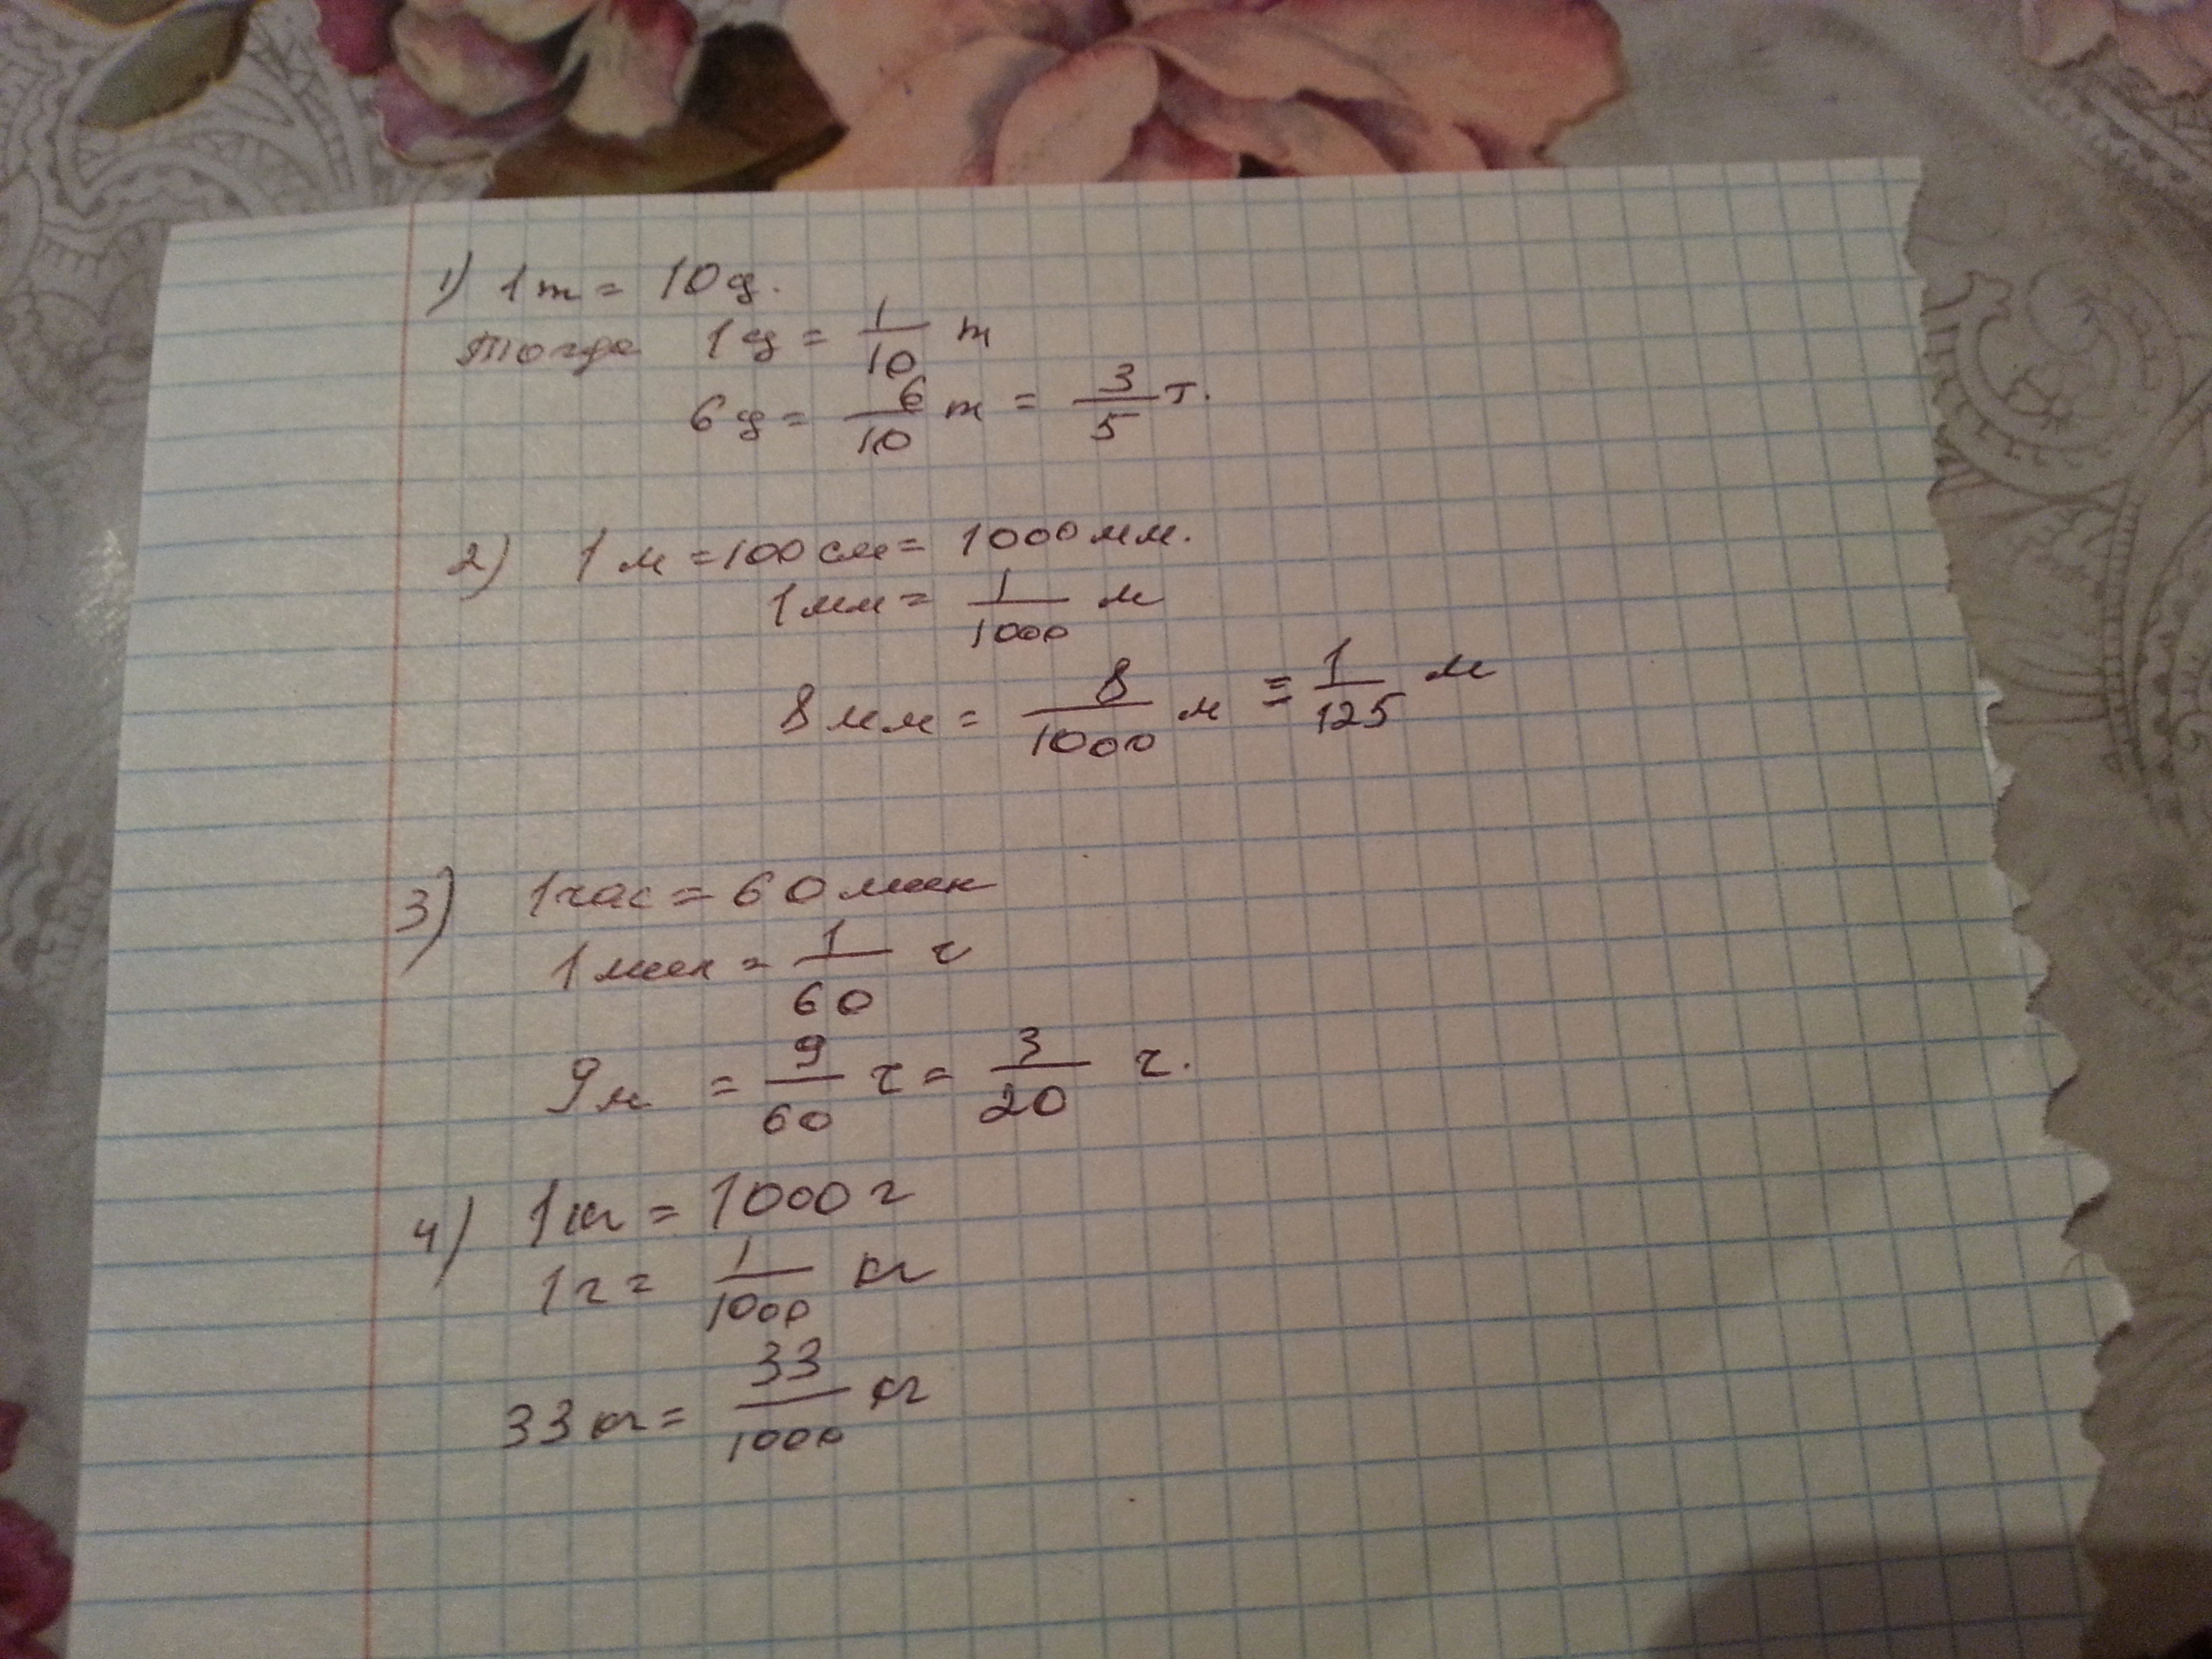 1) 1 т = 10 ц.
тогда 1 ц = 1/10 т
6 ц = 6/10 т = 3/5 т.
2) 1 м = 100 см = 1000 мм.
1 мм = 1/1000 м
8 мм = 8/1000 м = 1/125 м
3) 1 час = 60 мин
1 мин = 1/60 ч
9 м = 9/60 ч = 3/20 ч.
4) 1 кг = 1000 г
1 г = 1/1000 кг
33 кг = 33/1000 кг